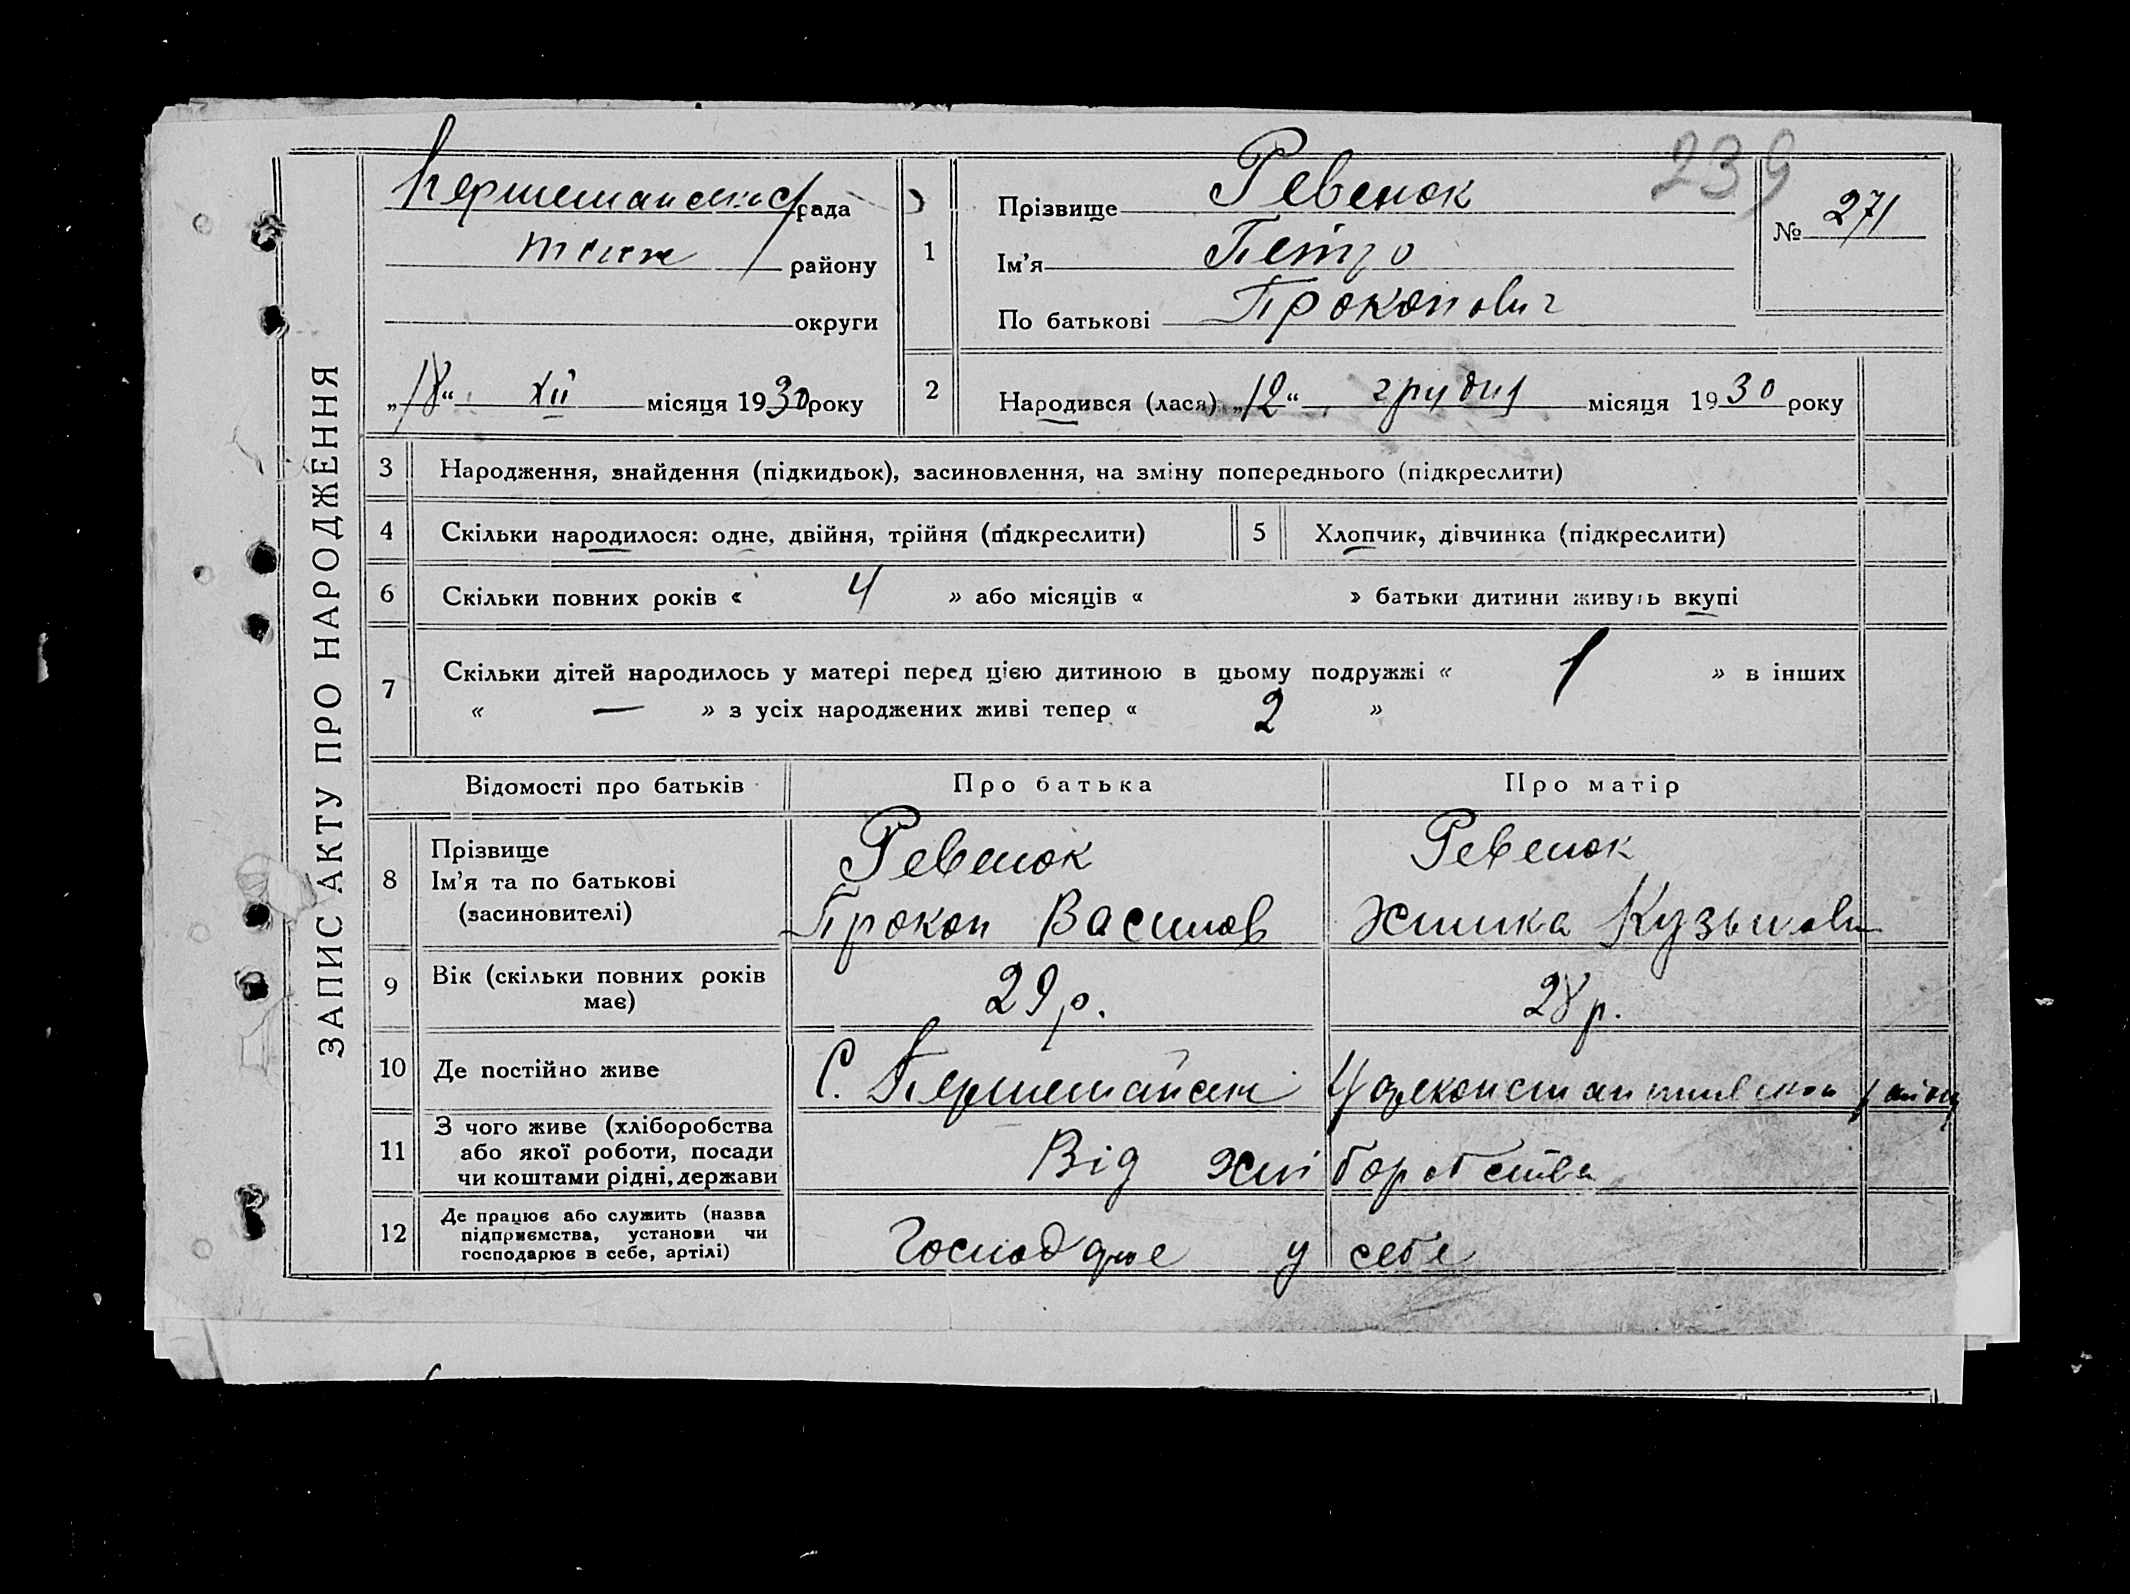 ЗАПИС АКТУ ПРО НАРОДЖЕННЯ
239
рада
району
округи
„18“ XII місяця 1930 року
1
Прізвище Ревенок
Ім’я Петро
По батькові Прокопович
№ 271
2 Народився (лася) „12“ грудня місяця 1930 року
3 Народження, знайдення (підкидьок), засиновлення, на зміну попереднього (підкреслити)
4 Скільки народилося: одне, двійня, трійня (підкреслити) 5 Хлопчик, дівчинка (підкреслити)
6 Скільки повних років « 4 » або місяців « » батьки дитини живуть вкупі
7 Скільки дітей народилось у матері перед цією дитиною в цьому подружжі « 1 » в інших
« — » з усіх народжених живі тепер « 2 »
Відомості про батьків Про батька Про матір
8 Прізвище
Ім’я та по батькові
(засиновителі)
Ревенок
Прокоп Васильов
Ревенок
Кузьмов
9 Вік (скільки повних років
має)
29 р. 28 р.
10 Де постійно живе С.
11 З чого живе (хліборобства
або якої роботи, посади
чи коштами рідні, держави
Від хліборобства
12 Де працює або служить (назва
підприємства, установи чи
господарює в себе, артілі)
Господарює у себе